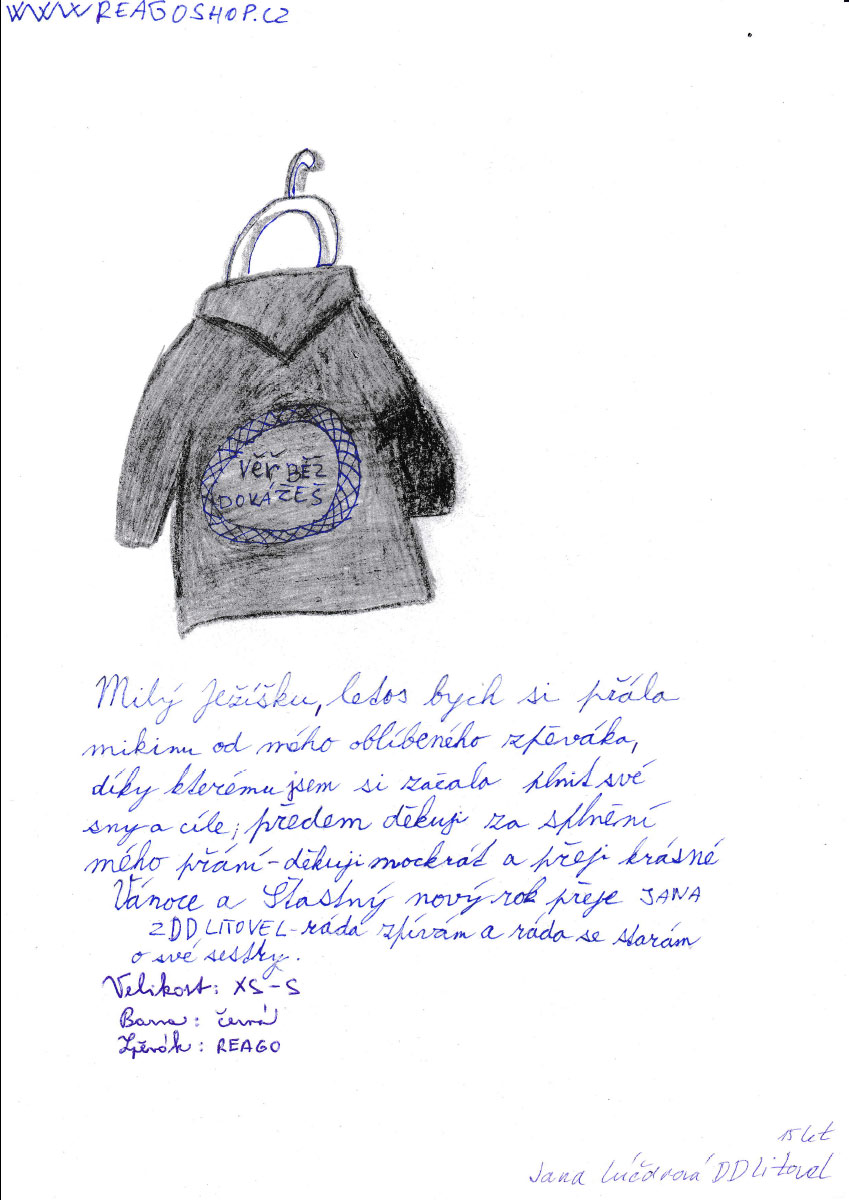 WWW.REAGOSHOP.CZ
Věř BĚŽ
DOKÁŽEŠ
Milý Ježíšku, letos bych si přála
mikinu od mého oblíbeného zpěváka,
díky kterému jsem si začala plnit své
sny a cíle, předem děkuji za splnění
mého přání - děkuji mockrát a přeji krásné
Vánoce a Šťastný nový rok přeje JANA
Z DD LITOVEL - ráda zpívám a ráda se starám
o své sestky.
Velikost: XS-S
Barva: černá
Zpěvák: REAGO
15 let
Jana DD Litovel